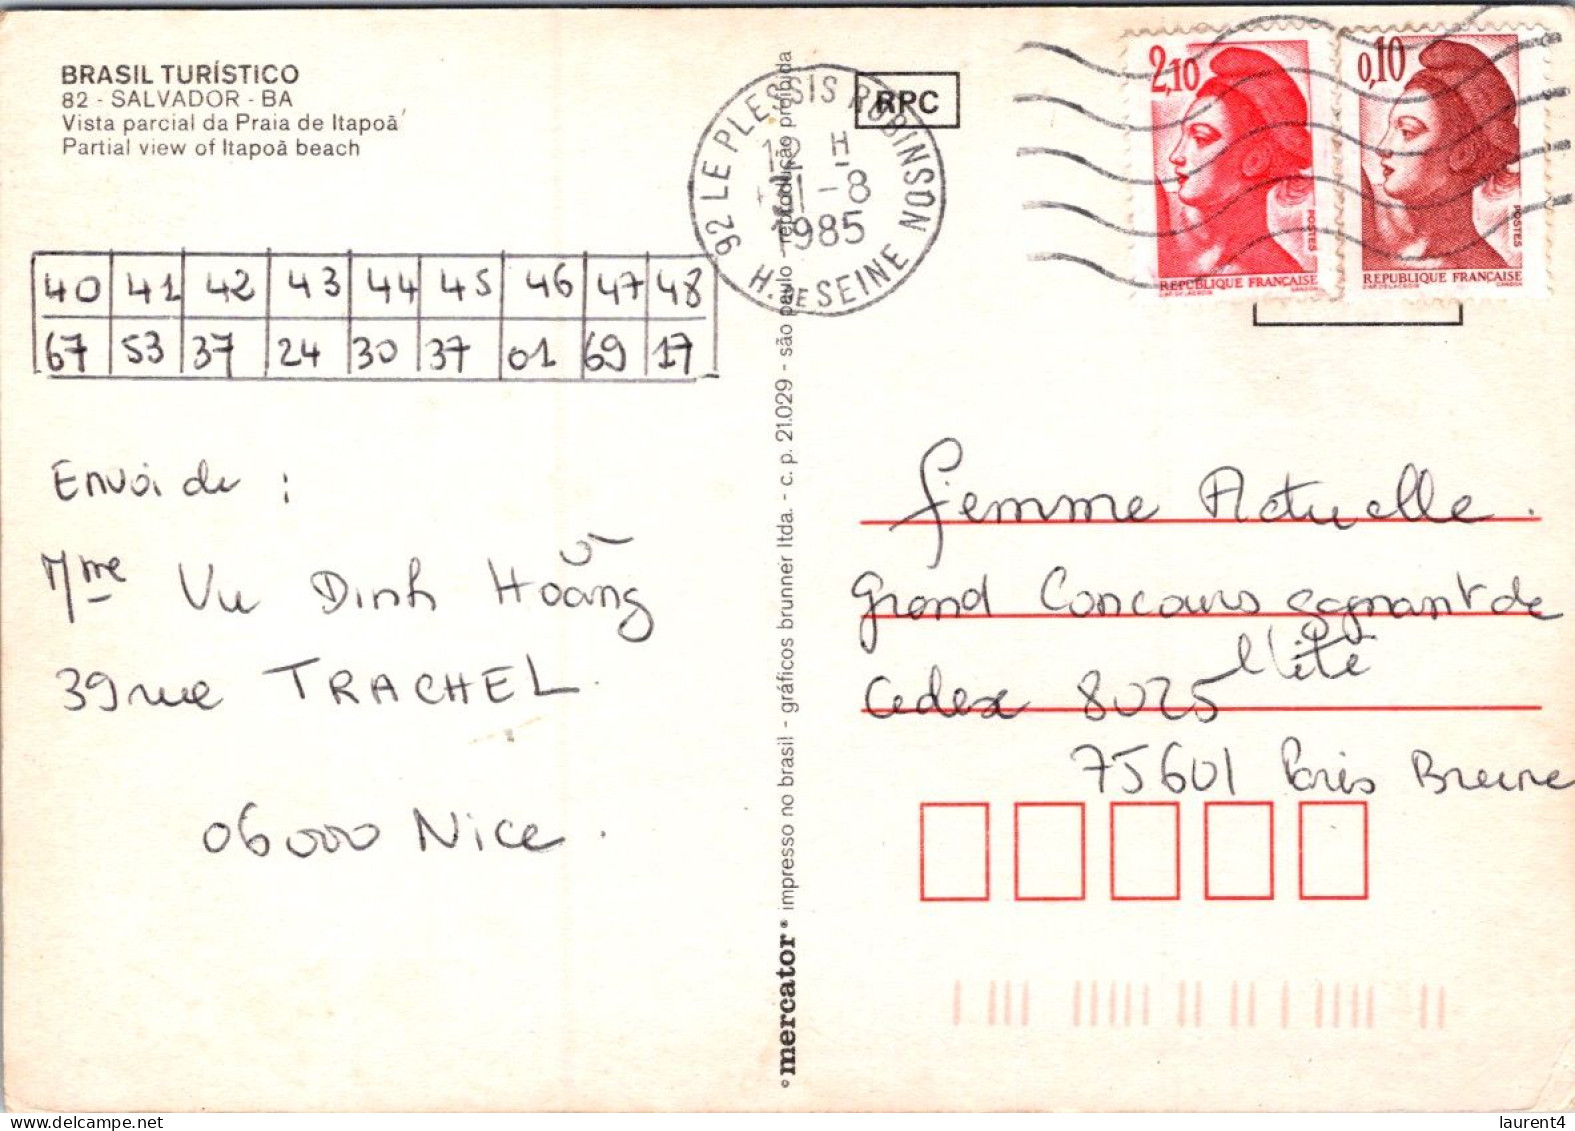 BRASIL TURÍSTICO
82 - SALVADOR - BA
Vista parcial da Praia de Itapoã
Partial view of Itapoã beach
RPC
92 LE PLESSIS ROBINSON
H. DE SEINE
12 H
1985
2,10
POSTES
REPUBLIQUE FRANÇAISE
0,10
POSTES
REPUBLIQUE FRANÇAISE
40 41 42 43 44 45 46 47 48
67 53 37 24 30 37 01 69 17
Envoi de :
Mme Vu Dinh Hoãng
39 rue TRACHEL
06000 Nice.
°mercator® impresso no brasil - gráficos brunner ltda. - c. p. 21.029 - são paulo - reprodução proibida
Femme Actuelle.
Grand Concours gagnant de
l'été
Cedex 8025
75601 Paris
laurent4